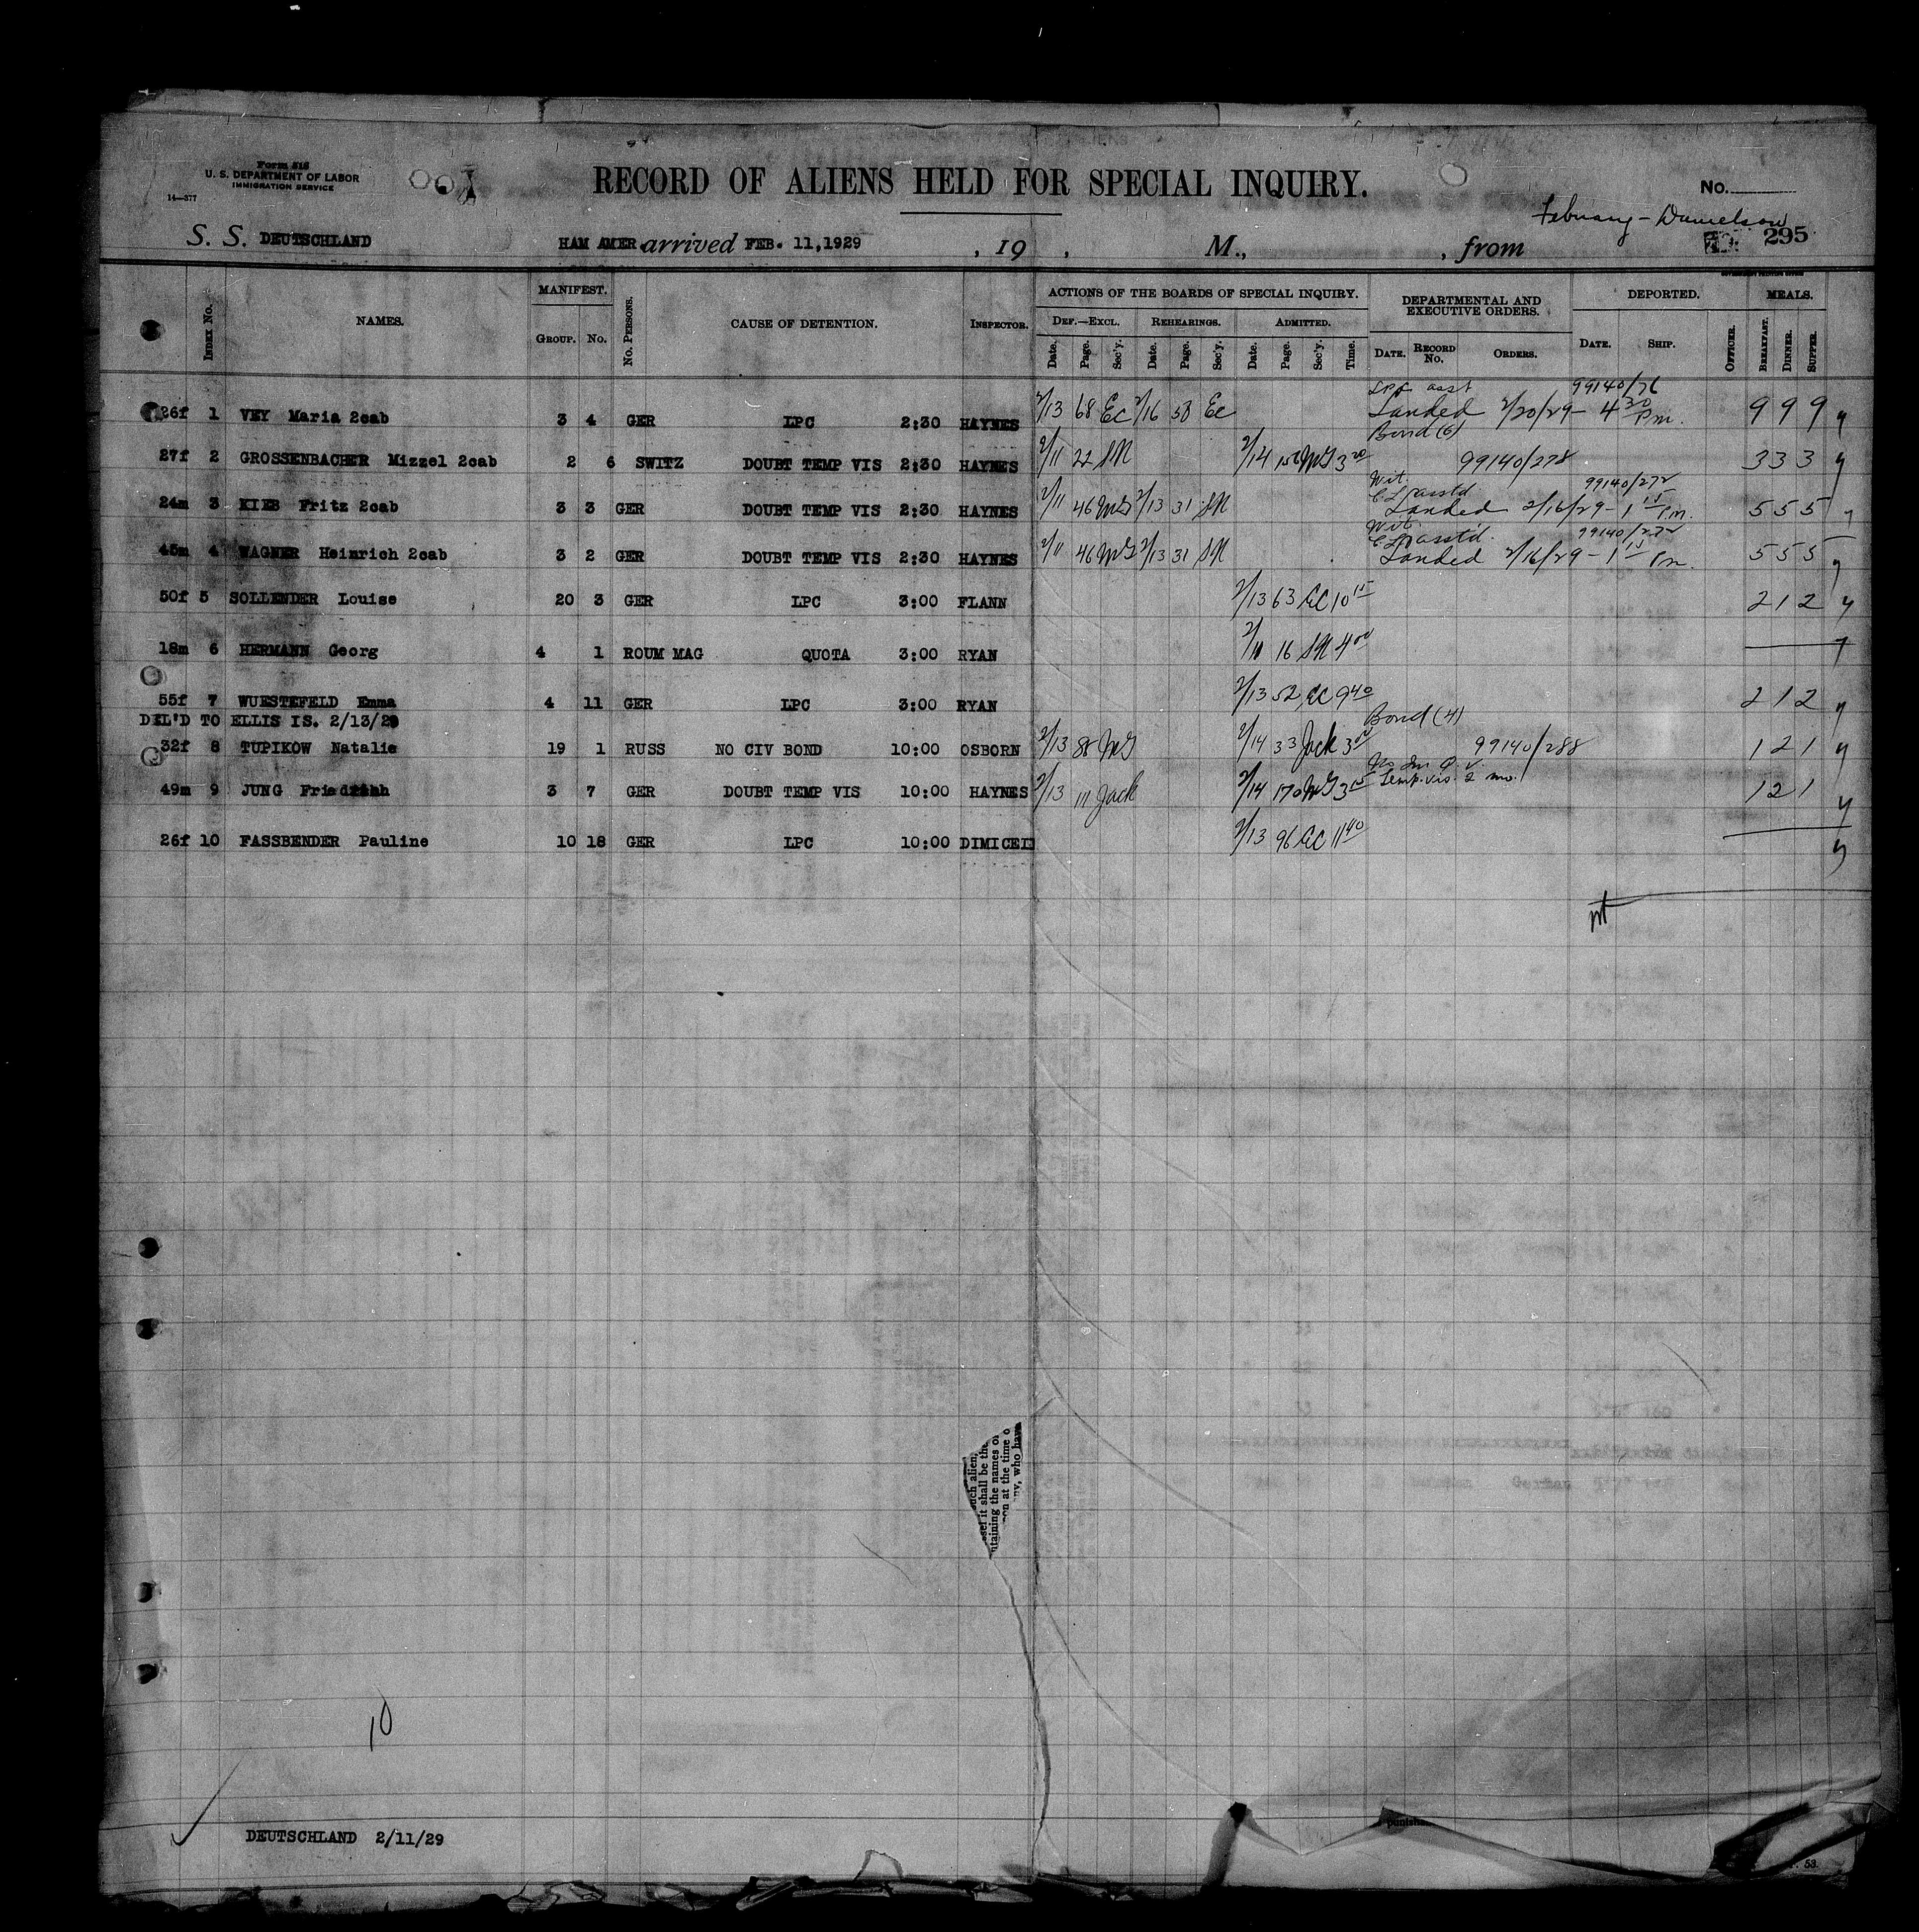 Form 518
U. S. DEPARTMENT OF LABOR
IMMIGRATION SERVICE
14—377
RECORD OF ALIENS HELD FOR SPECIAL INQUIRY.
No.
February - Danielson
S. S. DEUTSCHLAND HAM AMER arrived FEB. 11,1929 , 19 , M., , from 295
INDEX No. NAMES. MANIFEST. GROUP. No. No. PERSONS. CAUSE OF DETENTION. INSPECTOR. ACTIONS OF THE BOARDS OF SPECIAL INQUIRY. DEF.—EXCL. Date. Page. Sec'y. REHEARINGS. Date. Page. Sec'y. ADMITTED. Date. Page. Sec'y. Time. DEPARTMENTAL AND EXECUTIVE ORDERS. DATE. RECORD No. ORDERS. DEPORTED. DATE. SHIP. OFFICER. MEALS. BREAKFAST. DINNER. SUPPER.
99140/76
26f 1 VEY Maria 2cab 3 4 GER LPC 2:30 HAYNES 2/13 68 EC 2/16 58 EC Landed 2/20/29 - 4 30 Pm. 9 9 9
Bond (6)
27f 2 GROSSENBACHER Mizzel 2cab 2 6 SWITZ DOUBT TEMP VIS 2:30 HAYNES 2/11 22 SM 2/14 152 MG 3 20 99140/278 3 3 3
99140/272
24m 3 KIEB Fritz 2cab 3 3 GER DOUBT TEMP VIS 2:30 HAYNES 2/11 46 MG 2/13 31 SM Landed 2/16/29 - 1 15 Pm. 5 5 5
99140/272
45m 4 WAGNER Heinrich 2cab 3 2 GER DOUBT TEMP VIS 2:30 HAYNES 2/11 46 MG 2/13 31 SM Landed 2/16/29 - 1 15 Pm. 5 5 5
50f 5 SOLLENDER Louise 20 3 GER LPC 3:00 FLANN 2/13 63 EC 10 15 2 1 2
18m 6 HERMANN Georg 4 1 ROUM MAG QUOTA 3:00 RYAN 2/11 16 SM 4 00
55f 7 WUESTEFELD Emma 4 11 GER LPC 3:00 RYAN 2/13 52 EC 9 40 2 1 2
DEL'D TO ELLIS IS. 2/13/29
Bond (4)
32f 8 TUPIKOW Natalie 19 1 RUSS NO CIV BOND 10:00 OSBORN 2/13 88 MG 2/14 33 Jack 3 00 99140/288 1 2 1
49m 9 JUNG Friedrich 3 7 GER DOUBT TEMP VIS 10:00 HAYNES 2/13 11 Jack 2/14 170 MG 3 15 Temp. vis. 2 mo. 1 2 1
26f 10 FASSBENDER Pauline 10 18 GER LPC 10:00 DIMICELI 2/13 96 EC 11 40
such alien,
it shall be the
taining the names of
on at the time o
ny, who have
10
DEUTSCHLAND 2/11/29
punish
53.